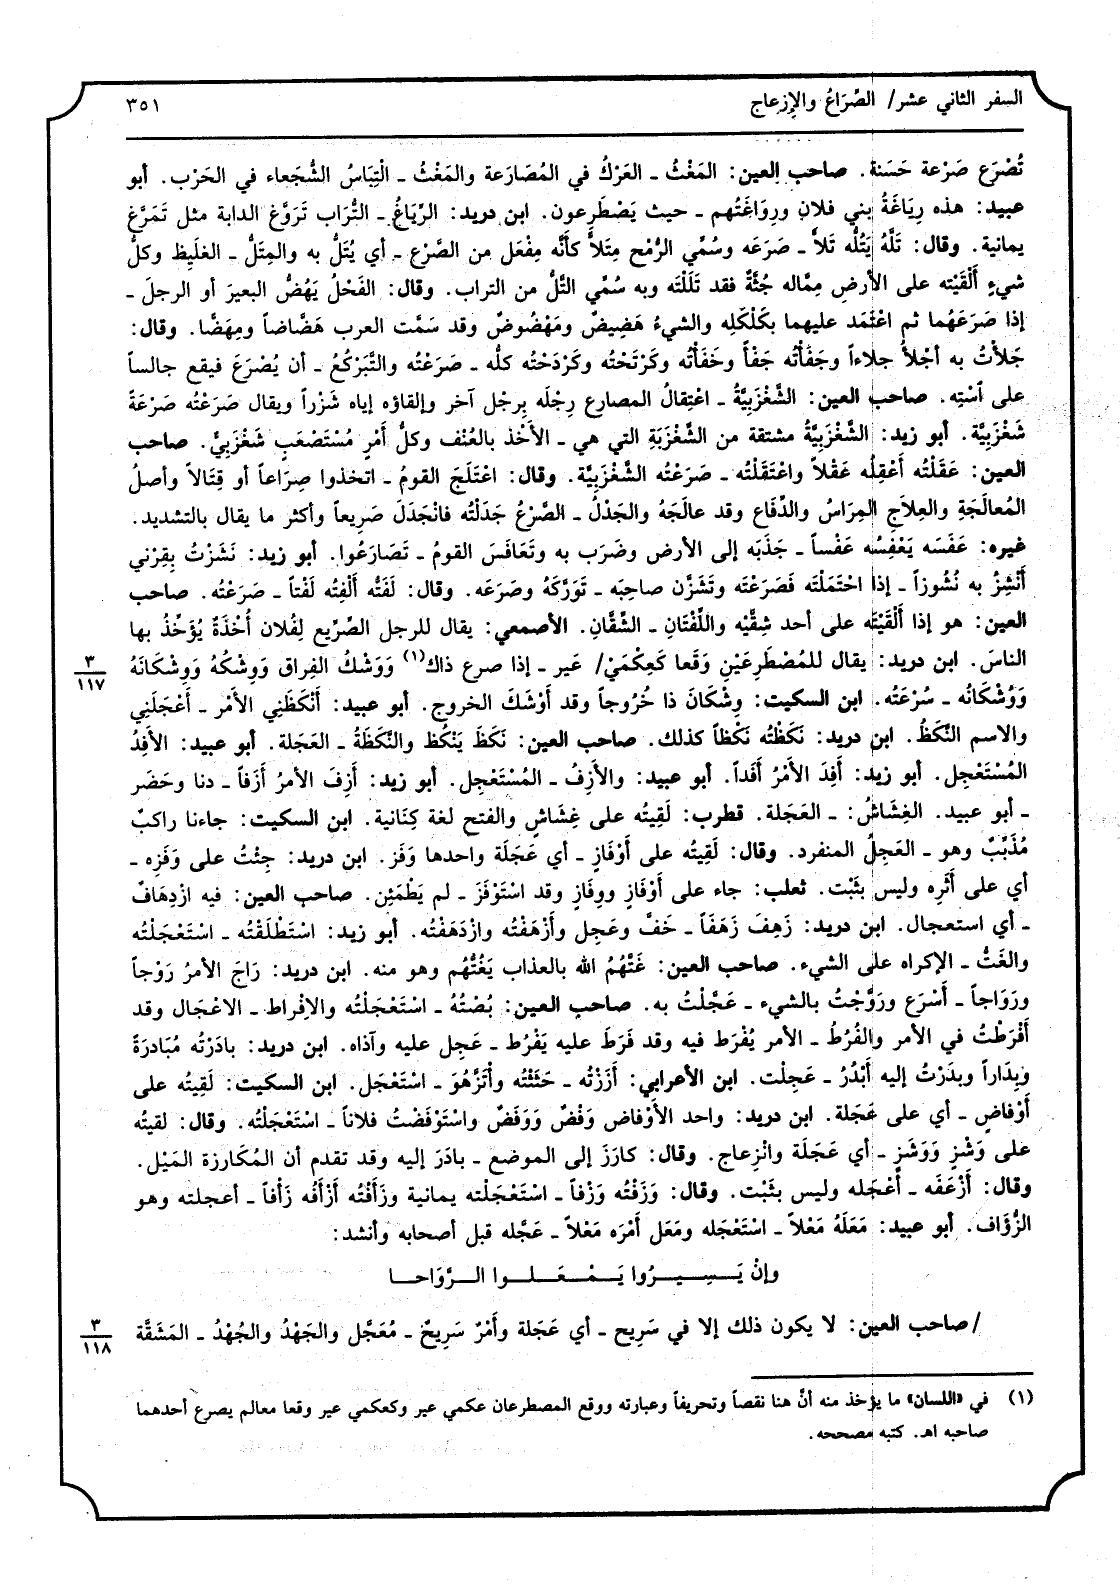 السفر الثاني عشر/ الصِّرَاعُ والإِزعاج
٣٥١
تُصْرَع صَرْعة حَسَنة. صاحب العين: المَغْثُ ـ العَرْكُ في المُصَارَعة والمَغْثُ ـ الْتِبَاسُ الشُّجَعاء في الحَرْب. أبو
عبيد: هذه رِيَاغَةُ بني فلانٍ ورِوَاغَتُهم ـ حيث يَصْطَرِعون. ابن دريد: الرِّيَاغُ ـ التُّرَاب تَرَوَّغ الدابة مثل تَمَرَّغ
يمانية. وقال: تَلَّهُ يَتُلُّه تَلاًّ ـ صَرَعَه وسُمِّي الرُّمْح مِتَلاًّ كأنَّه مِفْعَل من الصَّرْع ـ أي يُتَلُّ به والمِتَلُّ ـ الغَلِيظ وكلُّ
شيءٍ أَلْقَيْته على الأرضِ مِمَّاله جُثَّةٌ فقد تَلَلْتَه وبه سُمِّي التَّلُّ من التراب. وقال: الفَحْلُ يَهُضُّ البعيرَ أو الرجلَ ـ
إذا صَرَعَهُما ثم اعْتَمَد عليهما بكَلْكَلِه والشيءُ هَضِيضٌ ومَهْضُوضٌ وقد سَمَّت العرب هَضَّاضاً ومِهَضًّا. وقال:
جَلأْتُ به أجْلأُ جلاءاً وجَفَأْتُه جَفْأً وخَفَأْتُه وكَرْتَحْتُه وكَرْدَحْتُه كلُّه ـ صَرَعْتُه والتَّبَرْكُعُ ـ أن يُصْرَعَ فيقع جالساً
على اَسْتِه. صاحب العين: الشَّغْزَبِيَّةُ ـ اعْتِقالُ المصارع رِجْلَه بِرِجْل آخر وإلقاؤه إياه شَزْراً ويقال صَرَعْتُه صَرْعَةً
شَغْزَبِيَّة. أبو زيد: الشَّغْزَبِيَّةُ مشتقة من الشَّغْزَبَةِ التي هي ـ الأَخْذ بالعُنْف وكلُّ أَمْرٍ مُسْتَصْعَبٍ شَغْزَبِيٌّ. صاحب
العين: عَقَلْتُه أَعْقِلُه عَقْلاً واعْتَقَلْتُه ـ صَرَعْتُه الشَّغْزَبِيَّة. وقال: اعْتَلَجَ القومُ ـ اتخذوا صِرَاعاً أو قِتَالاً وأصلُ
المُعالَجَةِ والعِلاَجِ المِرَاسُ والدِّفَاع وقد عالَجَهُ والجَدْلُ ـ الصَّرْعُ جَدَلْتُه فانْجَدَلَ صَرِيعاً وأكثر ما يقال بالتشديد.
غيره: عَفَسَه يَعْفِسُه عَفْساً ـ جَذَبَه إلى الأرض وضَرَب به وتَعَافَسَ القومُ ـ تَصَارَعُوا. أبو زيد: نَشَزْتُ بِقِرْني
أَنْشِزُ به نُشُوزاً ـ إذا احْتَمَلْتَه فَصَرَعْتَه وتَشَزَّن صاحِبَه ـ تَوَرَّكَهُ وصَرَعَه. وقال: لَفَتُّه أَلْفِتُه لَفْتاً ـ صَرَعْتُه. صاحب
العين: هو إذا أَلْقَيْتَه على أحد شِقَّيْه واللِّفْتَانِ ـ الشِّقَّانِ. الأصمعي: يقال للرجل الصِّرِّيع لِفُلان أُخْذَةٌ يُؤَخِّذُ بها
الناسَ. ابن دريد: يقال للمُصْطَرِعَيْنِ وَقَعا كَعِكْمَيْ/ عَير ـ إذا صرع ذاك(١) وَوَشْكُ الفِراق وَوِشْكُهُ وَوِشْكَانَهُ
٣
١١٧
وَوُشْكَانُه ـ سُرْعَتُه. ابن السكيت: وِشْكَانَ ذا خُرُوجاً وقد أَوْشَكَ الخروج. أبو عبيد: أَنْكَظَنِي الأَمْر ـ أَعْجَلَنِي
والاسم النَّكَظُ. ابن دريد: نَكَظْتُه نَكْظاً كذلك. صاحب العين: نَكَظَ يَنْكُظ والنَّكَظَةُ ـ العَجَلة. أبو عبيد: الأَفِدُ
المُسْتَعْجِل. أبو زيد: أَفِدَ الأَمْرُ أَفَداً. أبو عبيد: والأَزِفُ ـ المُسْتَعْجِل. أبو زيد: أَزِفَ الأمرُ أَزَفاً ـ دنا وحَضَر
ـ أبو عبيد. الغِشَاشُ: ـ العَجَلة. قطرب: لَقِيتُه على غِشَاشٍ والفتح لغة كِنَانية. ابن السكيت: جاءنا راكبٌ
مُذَبِّبٌ وهو ـ العَجِلُ المنفرد. وقال: لَقِيتُه على أَوْفَازٍ ـ أي عَجَلة واحدها وَفَز. ابن دريد: جِئْتُ على وَفَزِه ـ
أي على أَثَرِه وليس بثَبْت. ثعلب: جاء على أَوْفَازٍ ووِفازٍ وقد اسْتَوْفَزَ ـ لم يَطْمَئِن. صاحب العين: فيه ازْدِهَافٌ
ـ أي استعجال. ابن دريد: زَهِفَ زَهَفاً ـ خَفَّ وعَجِل وأَزْهَفْتُه وازْدَهَفْتُه. أبو زيد: اسْتَطْلَقْتُه ـ اسْتَعْجَلْتُه
والغَتُّ ـ الإكراه على الشيء. صاحب العين: غَتَّهُمُ الله بالعذاب يَغُتُّهُم وهو منه. ابن دريد: رَاجَ الأمرُ رَوْجاً
ورَوَاجاً ـ أَسْرَع ورَوَّجْتُ بالشيء ـ عَجَّلْتُ به. صاحب العين: بُصْتُهُ ـ اسْتَعْجَلْتُه والإفْراط ـ الاعْجَال وقد
أَفْرَطْتُ في الأمر والفُرُطُ ـ الأمر يُفْرَط فيه وقد فَرَطَ عليه يَفْرُط ـ عَجِل عليه وآذاه. ابن دريد: بادَرْتُه مُبَادَرَةً
وبِدَاراً وبدَرْتُ إليه أَبْدُرُ ـ عَجِلْت. ابن الأعرابي: أَزَزْتُه ـ حَثَثْتُه وأَتَزَّهُوَ ـ اسْتَعْجَل. ابن السكيت: لَقِيتُه على
أَوْفاضٍ ـ أي على عَجَلة. ابن دريد: واحد الأَوْفاض وَفْضٌ وَوَفَضٌ واسْتَوْفَضْتُ فلاناً ـ اسْتَعْجَلْتُه. وقال: لقيتُه
على وَشْزٍ وَوَشَزٍ ـ أي عَجَلة وانْزِعاج. وقال: كارَزَ إلى الموضع ـ بادَرَ إليه وقد تقدم أن المُكَارزة المَيْل.
وقال: أَزْعَفَه ـ أَعْجَله وليس بثَبْت. وقال: وَزَفْتُه وَزْفاً ـ اسْتَعْجَلْته يمانية وزَأَفْتُه أَزْأَفُه زَأْفاً ـ أعجلته وهو
الزُّؤَاف. أبو عبيد: مَعَلَهُ مَعْلاً ـ اسْتَعْجَله ومَعَل أَمْرَه مَعْلاً ـ عَجَّله قبل أصحابه وأنشد:
وإنْ يَــسِــيــرُوا يَــمْــعَــلــوا الــرَّوَاحــا
/صاحب العين: لا يكون ذلك إلا في سَرِيح ـ أي عَجَلة وأَمْرٌ سَرِيحٌ ـ مُعَجَّل والجَهْدُ والجُهْدُ ـ المَشَقَّة
٣
١١٨
(١) في «اللسان» ما يؤخذ منه أنَّ هنا نقصاً وتحريفاً وعبارته ووقع المصطرعان عكمي عير وكعكمي عير وقعا معالم يصرع أحدهما
صاحبه اهـ. كتبه مصححه.